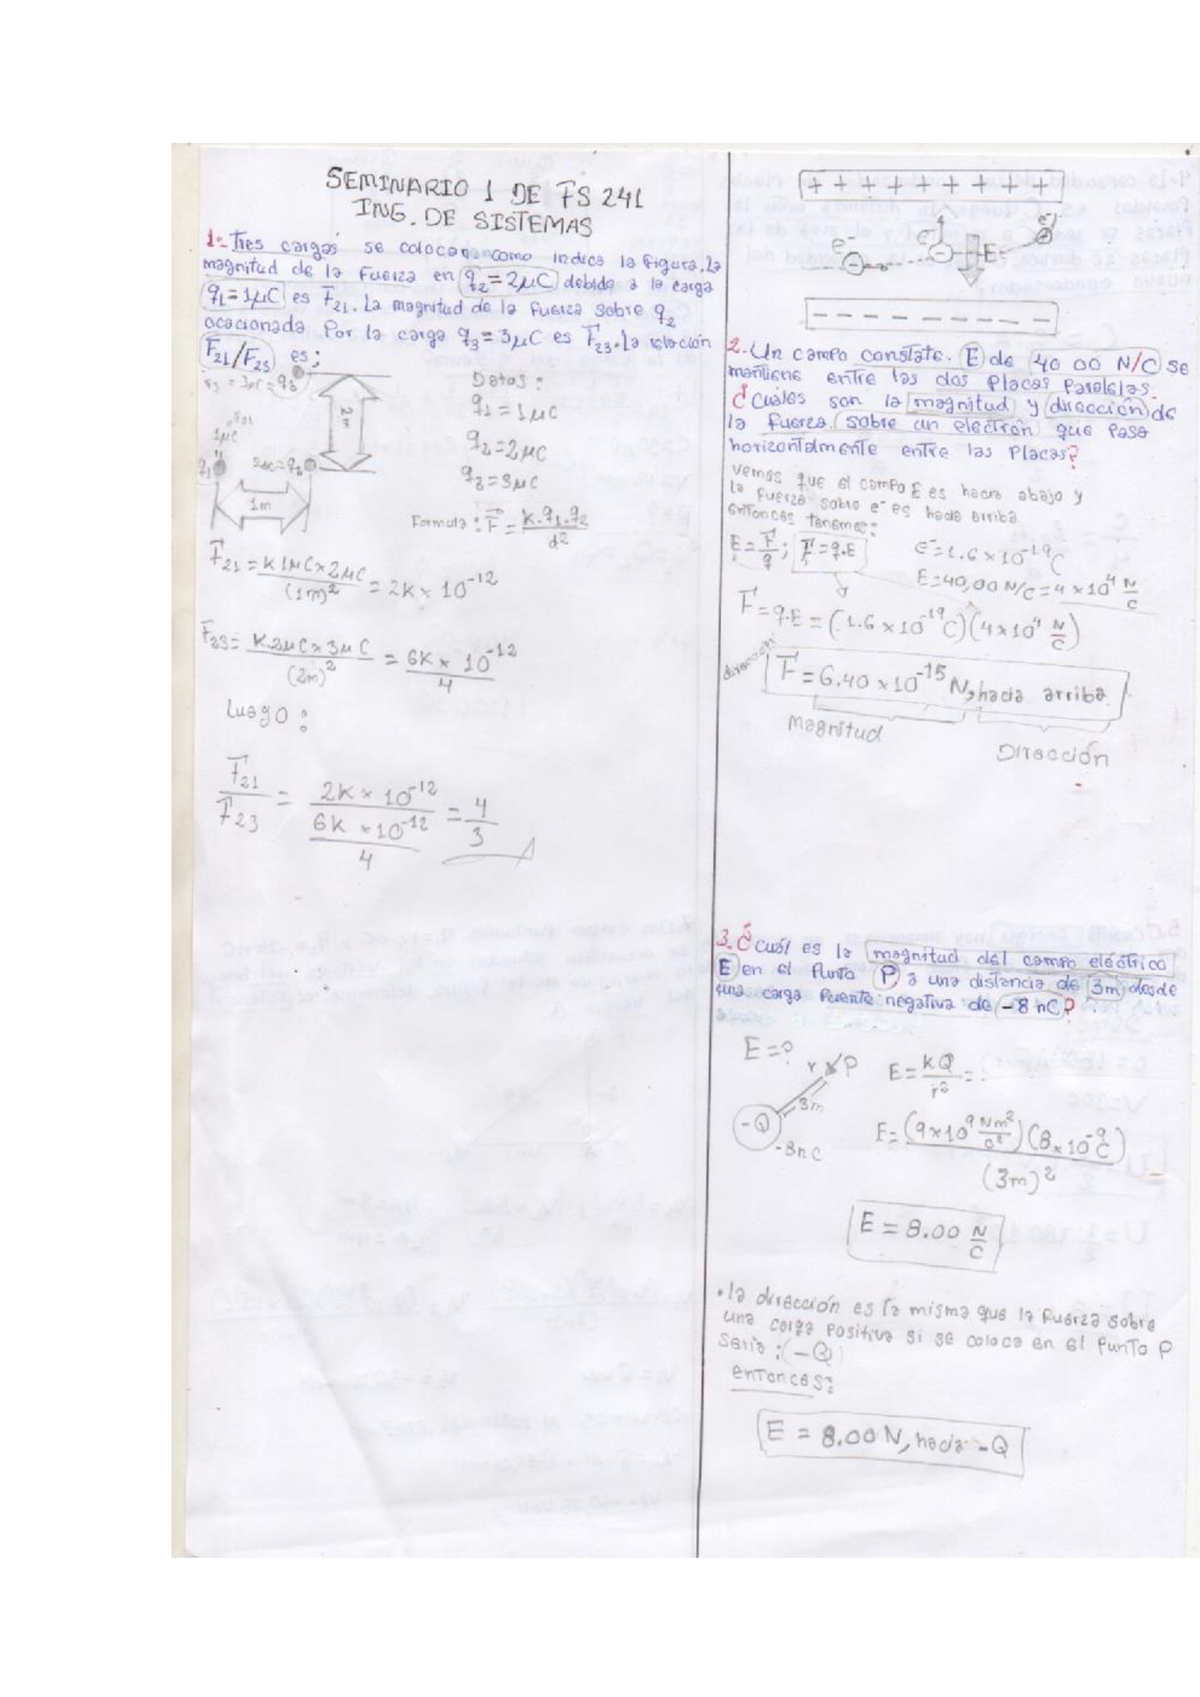 SEMINARIO 1 DE FS 241
ING. DE SISTEMAS
1.- Tres cargas se colocan como indica la figura. La
magnitud de la fuerza en q2=2μC debida a la carga
q1=1μC es F21. La magnitud de la fuerza sobre q2
ocacionada Por la carga q3=3μC es F23. La relación
F21/F23 es;
q3
2m
F21
1μC
q1
2μC=q2
1m
Datos:
q1=1μC
q2=2μC
q3=3μC
Formula: F=K.q1.q2/d2
F21=K1μCx2μC/(1m)2=2Kx10-12
F23=K.2μCx3μC/(2m)2=6Kx10-12/4
Luego:
F21/F23=2Kx10-12/6Kx10-12/4=4/3
+ + + + + + + + +
e-
e-
E
e-
- - - - - - - - -
2.- Un campo constate. E de 40 00 N/C se
mantiene entre las dos Placas Paralelas.
¿Cuáles son la magnitud y dirección de
la fuerza sobre un electrón que pasa
horizontalmente entre las Placas?
vemos que el campo E es hacia abajo y
la fuerza sobre e- es hacia arriba
entonces tenemos:
E=F/q; F=q.E
e-=1.6x10-19C
E=40,00 N/C=4x104 N/C
F=q.E=(1.6x10-19C)(4x104 N/C)
dirección
F=6.40x10-15 N, hacia arriba
Magnitud
Dirección
3.¿Cuál es la magnitud del campo eléctrico
E en el Punto P, a una distancia de 3m desde
una carga Puente negativa de -8 nC?
E=?
r
P
3m
-Q
-8nC
E=KQ/r2=
E=(9x109 Nm2/C2)(8x10-9C)/(3m)2
E=8.00 N/C
• la dirección es la misma que la fuerza sobre
una carga Positiva si se coloca en el Punto P
seria:(-Q)
entonces:
E=8.00N, hacia -Q